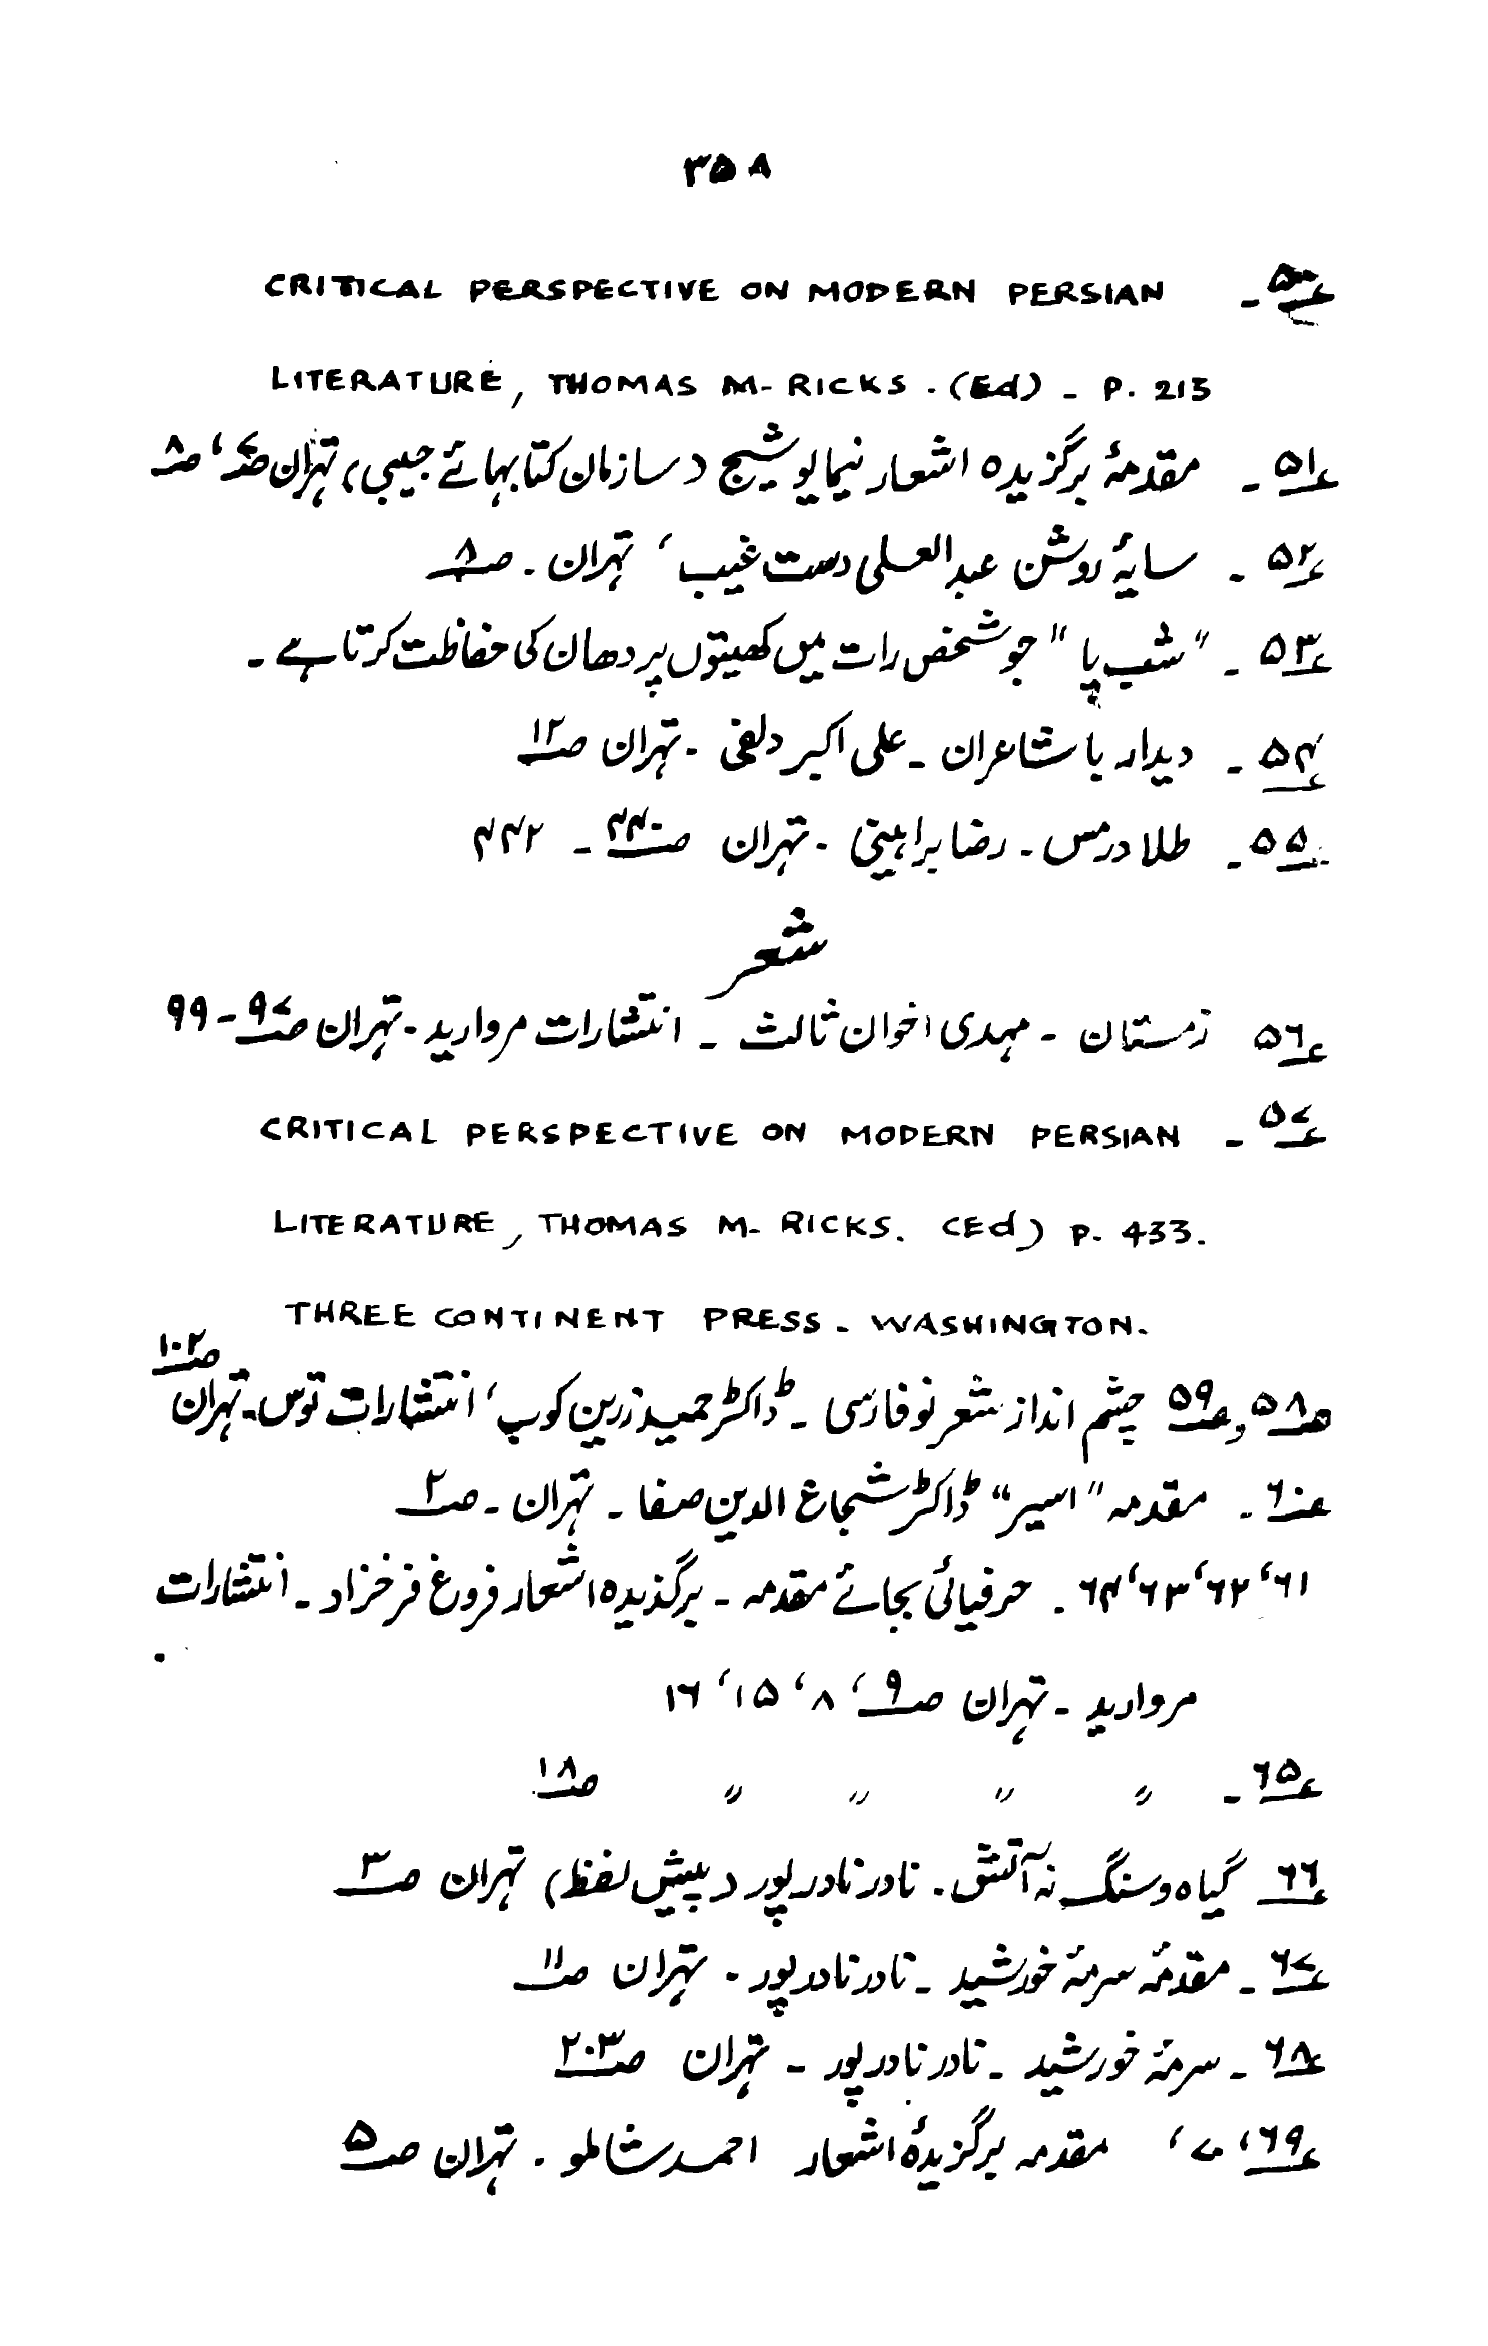 ۳۵۸
؏۵۰ـ CRITICAL PERSPECTIVE ON MODERN PERSIAN
LITERATURE, THOMAS M- RICKS . (Ed) - P. 213
؏۵۱ـ مقدمۂ برگزیدہ اشعار نیما یوشیج (سازمان کتابہائے جیبی) تہران ص۷، ص۸
؏۵۲ـ سایۂ روشن عبدالعلی دست غیب، تہران ـ ص۸
؏۵۳ـ "شب پا" جو شخص رات میں کھیتوں پر دھان کی حفاظت کرتا ہے ـ
؏۵۴ـ دیدار با شاعران ـ علی اکبر دلفی ـ تہران ص۱۲
۵۵ـ طلا در مس ـ رضا براہینی ـ تہران ص۴۴۰ ـ ۴۴۲
شعر
؏۵۶ زمستان ـ مہدی اخوان ثالث ـ انتشارات مروارید ـ تہران ص۹۷ـ۹۹
؏۵۷ـ CRITICAL PERSPECTIVE ON MODERN PERSIAN
LITERATURE, THOMAS M- RICKS. (Ed) P. 433.
THREE CONTINENT PRESS - WASHINGTON.
ص۵۸ و ؏۵۹ چشم انداز شعر نو فارسی ـ ڈاکٹر حمید زرین کوب، انتشارات توس ـ تہران ص۱۰۲
؏۶۰ ـ مقدمہ "اسیر" ڈاکٹر شجاع الدین صفا ـ تہران ـ ص۲
۶۱، ۶۲، ۶۳، ۶۴ ـ حرفہائی بجائے مقدمہ ـ برگذیدہ اشعار فروغ فرخزاد ـ انتشارات
مروارید ـ تہران ص۹، ۸، ۱۵، ۱۶
؏۶۵ـ " " " " ص۱۸
؏۶۶ گیاہ و سنگ نہ آتش ـ نادر نادر پور (پیش لفظ) تہران ص۳
؏۶۷ـ مقدمۂ سرمۂ خورشید ـ نادر نادر پور ـ تہران ص۱۱
؏۶۸ـ سرمۂ خورشید ـ نادر نادر پور ـ تہران ص۲۰۳
؏۶۹، ۷۰، مقدمہ برگزیدۂ اشعار احمد شاملو ـ تہران ص۵